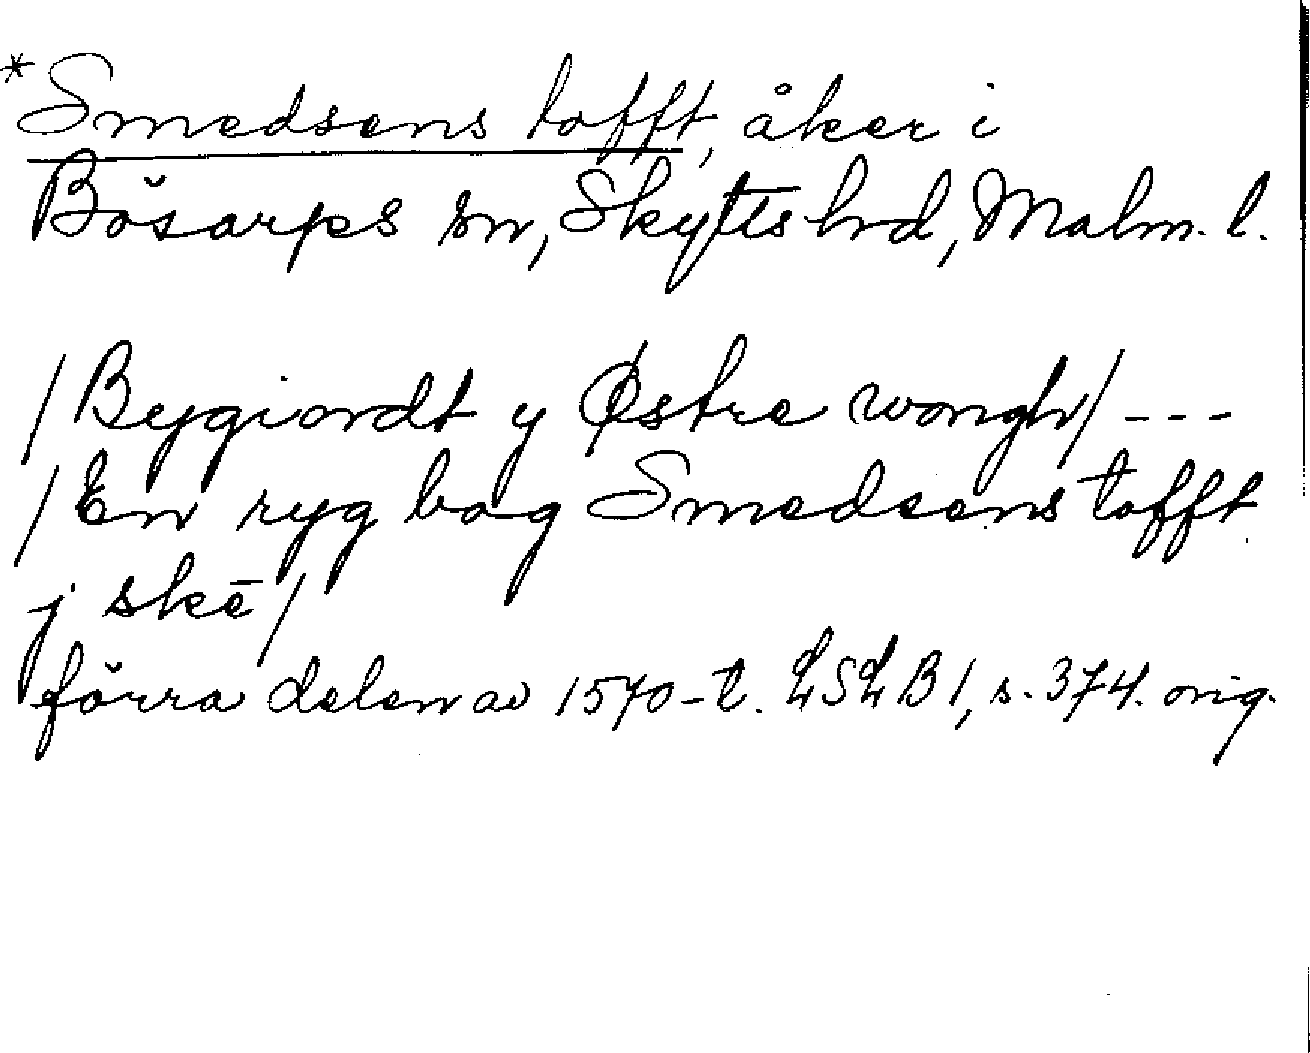 *Smedsens tofft, åker i
Bösarps sn, Skytts hd, Malm. l.
/Bygiordt y Østre wongh/ ---
/En ryg bag Smedsens tofft
j skē/
förra delen av 1570-t. LSLB1, s. 374. orig.